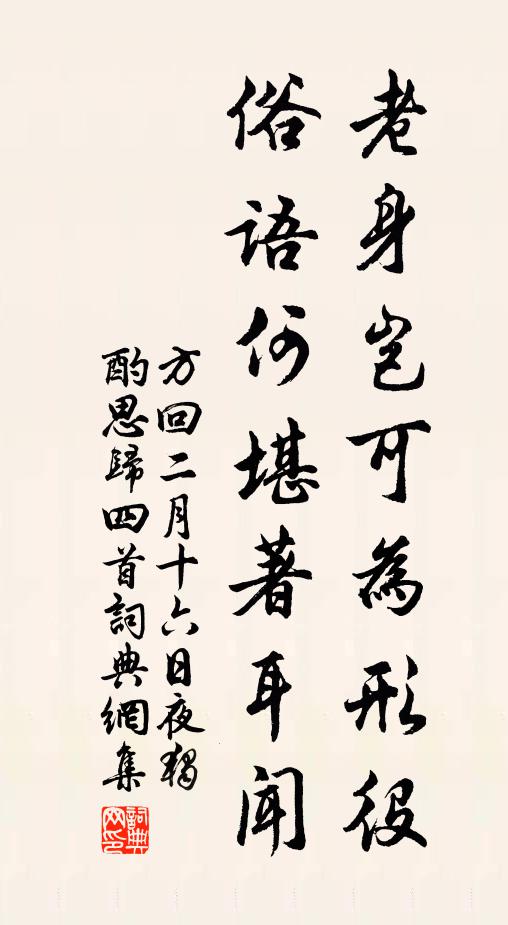 老身岂可為形役
俗语何堪著耳聞
方回二月十六日夜獨
酌思歸四首詞典網集
詞典
网印